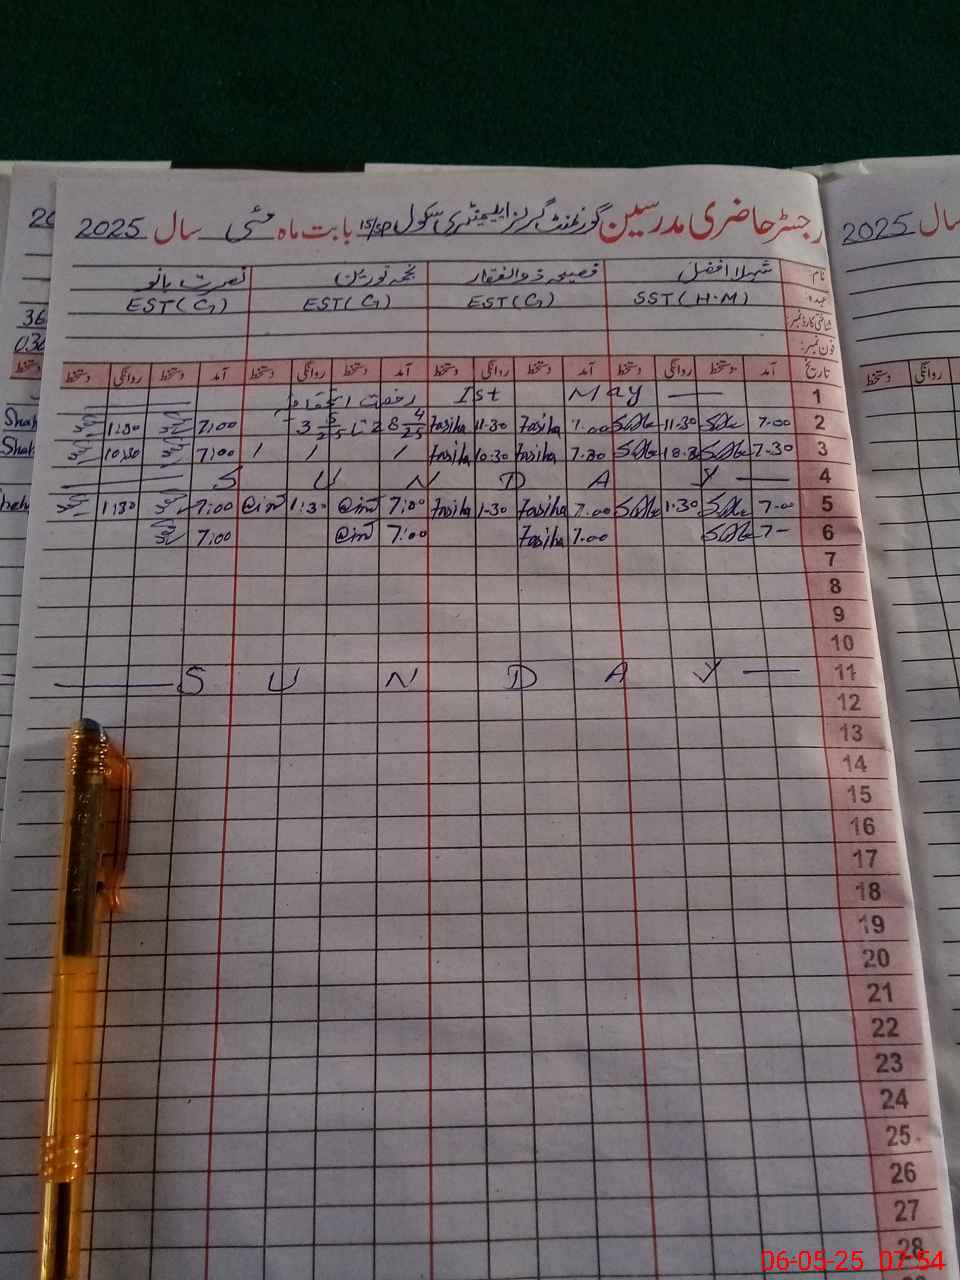 رجسٹر حاضری مدرسین گورنمنٹ گرلز ایلیمنٹری سکول 15/SP بابت ماہ مئی سال 2025
نام: شہلا افضل فصیحہ ذوالفقار نجمہ نورین نصرت بانو
عہدہ: SST (H.M) EST(G) EST(G) EST(G)
شناختی کارڈ نمبر:
فون نمبر:
تاریخ آمد دستخط روانگی دستخط آمد دستخط روانگی دستخط آمد دستخط روانگی دستخط آمد دستخط روانگی دستخط
1 Ist May
2 7.00 11.30 7.00 Fasiha 11.30 Fasiha 28 4/25 تا 3 5/25 7:00 1:30
3 7.30 10.30 7.30 Fasiha 10.30 Fasiha 7:00 10:30
4 S U N D A Y
5 7.00 1.30 7.00 Fasiha 1.30 Fasiha 7:00 1:30 7:00 1:30
6 7 7.00 Fasiha 7:00 7:00
7
8
9
10
11 S U N D A Y
12
13
14
15
16
17
18
19
20
21
22
23
24
25
26
27
28
سال 2025
روانگی دستخط
06-05-25 07:54